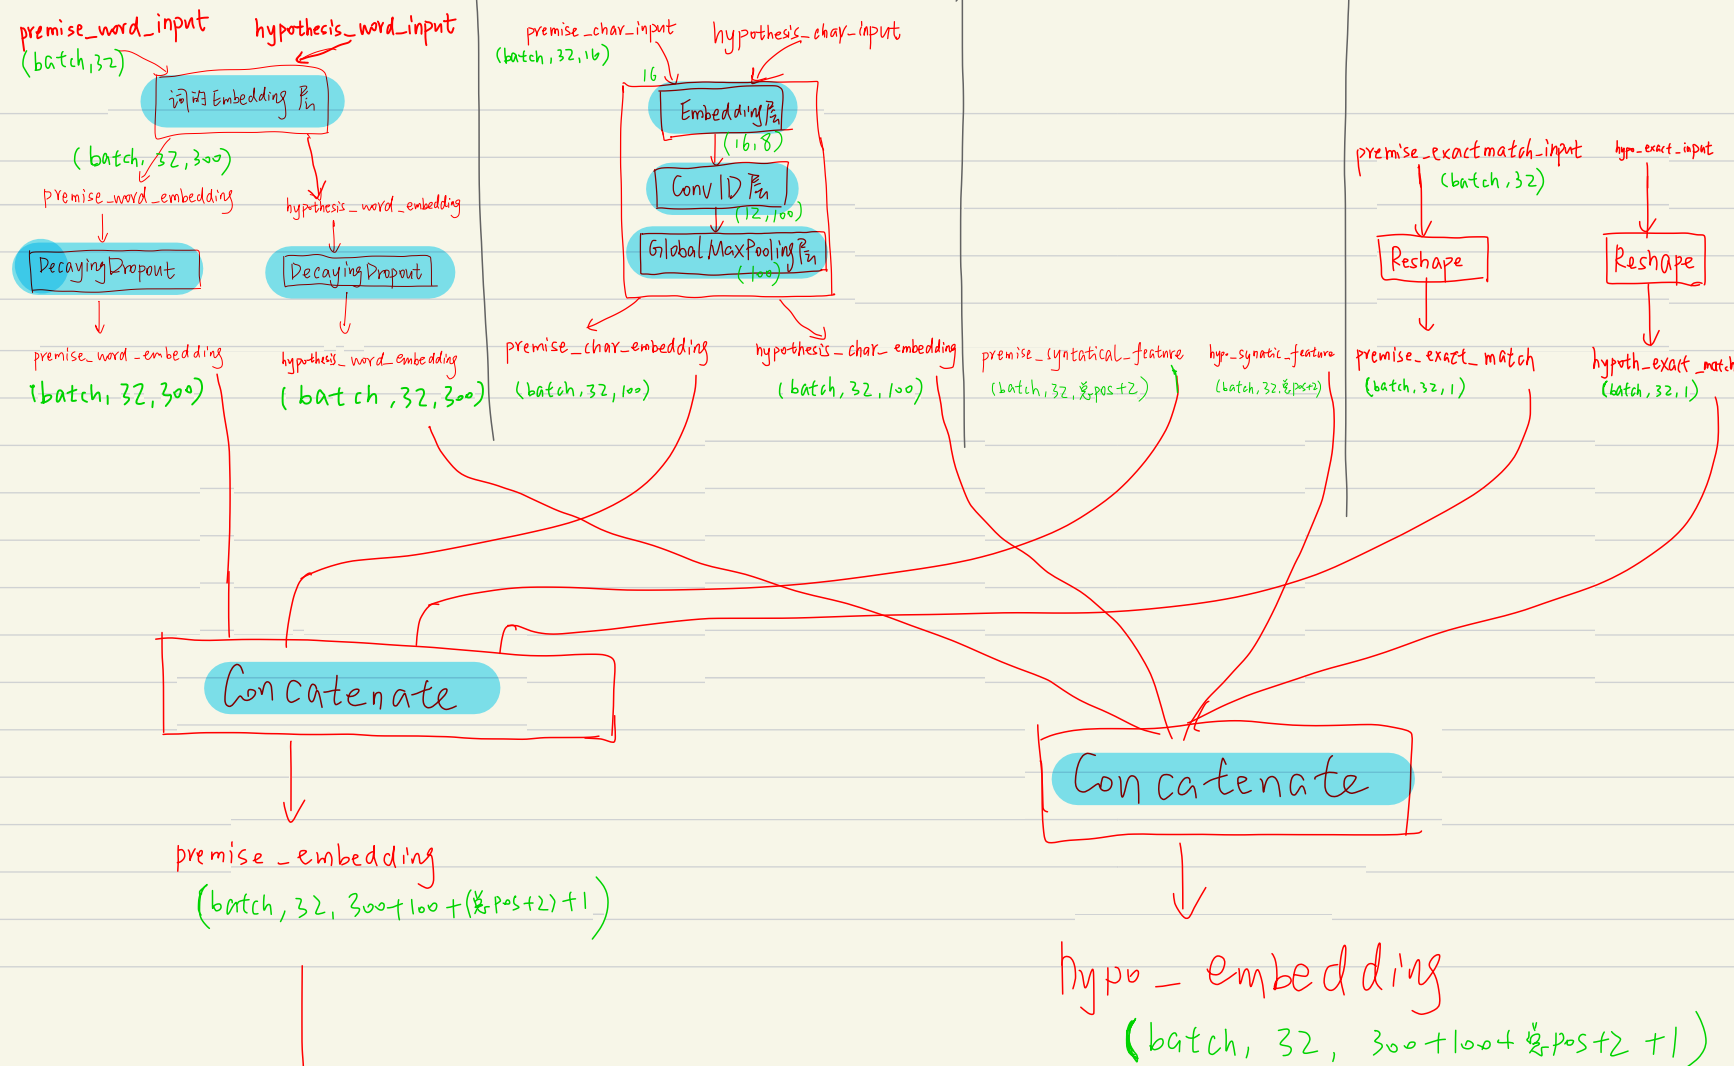 premise_word_input
(batch,32)
hypothesis_word_input
词的Embedding层
(batch, 32,300)
premise_word_embedding
hypothesis_word_embedding
DecayingDropout
DecayingDropout
premise_word_embedding
(batch, 32,300)
hypothesis_word_embedding
(batch,32,300)
premise_char_input
(batch,32,16)
hypothesis_char_input
16
Embedding层
(16,8)
Conv1D层
(12,100)
GlobalMaxPooling层
(100)
premise_char_embedding
(batch,32,100)
hypothesis_char_embedding
(batch,32,100)
premise_syntatical_feature
(batch,32,总pos+2)
hypo_synatic_feature
(batch,32,总pos+2)
premise_exactmatch_input
(batch,32)
hypo_exact_input
Reshape
Reshape
premise_exact_match
(batch,32,1)
hypoth_exact_match
(batch,32,1)
Concatenate
Concatenate
premise_embedding
(batch, 32, 300+100+(总pos+2)+1)
hypo_embedding
(batch, 32, 300+100+总pos+2+1)